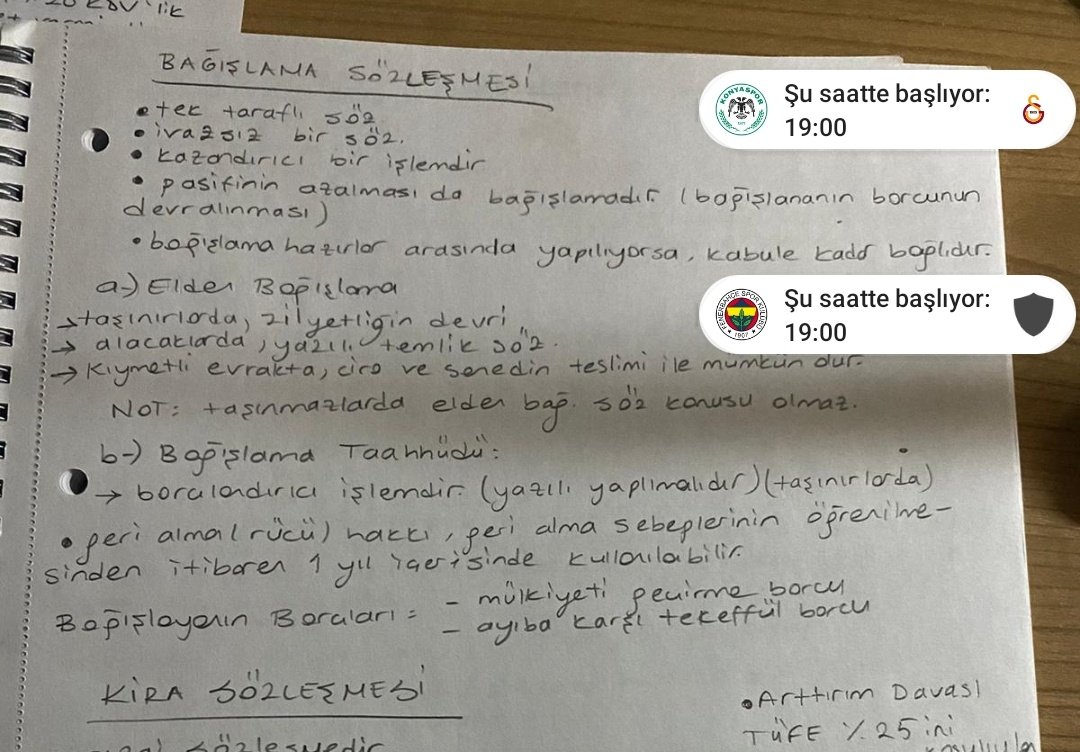 BAĞIŞLAMA SÖZLEŞMESİ
• tek taraflı söz
• ivazsız bir söz.
• kazandırıcı bir işlemdir
• pasifinin azalması da bağışlamadır. (bağışlananın borcunun
devralınması)
• bağışlama hazırlar arasında yapılıyorsa, kabule kadar bağlıdır.
a-) Elden Bağışlama
→ taşınırlarda, zilyetliğin devri
→ alacaklarda, yazılı temlik söz.
→ Kıymetli evrakta, ciro ve senedin teslimi ile mümkün olur.
NOT: taşınmazlarda elden bağ. söz konusu olmaz.
b-) Bağışlama Taahhüdü:
→ borçlandırıcı işlemdir. (yazılı yapılmalıdır) (taşınırlarda)
• geri alma (rücü) hakkı, geri alma sebeplerinin öğrenilme-
sinden itibaren 1 yıl içerisinde kullanılabilir.
Bağışlayanın Borçları = - mülkiyeti geçirme borcu
- ayıba karşı tekeffül borcu
KİRA SÖZLEŞMESİ
• Arttırım Davası
TÜFE % 25 ini
sözleşmedir
KONYASPOR
Şu saatte başlıyor:
19:00
FENERBAHÇE SPOR KULÜBÜ
1907
Şu saatte başlıyor:
19:00